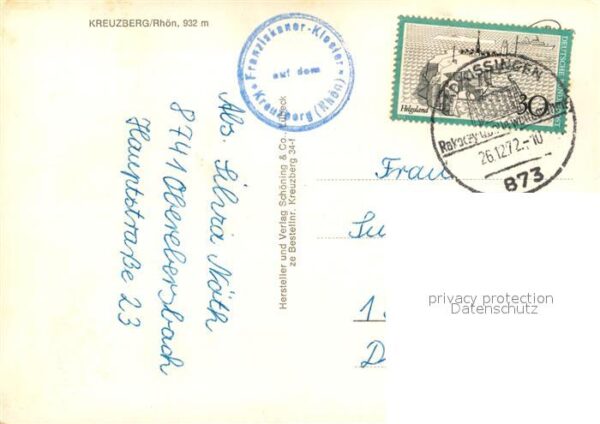 KREUZBERG/Rhön, 932 m
Franziskaner-Kloster
auf dem
Kreuzberg (Rhön)
Abs. Silvia Nöth
8741 Oberebersbach
Hauptstraße 23
Hersteller und Verlag Schöning & Co., Lübeck
ze Bestellnr. Kreuzberg 34-f
DEUTSCHE
Helgoland
30
BAD KISSINGEN
26.12.72.-10
873
Frau
1.
D
privacy protection
Datenschutz